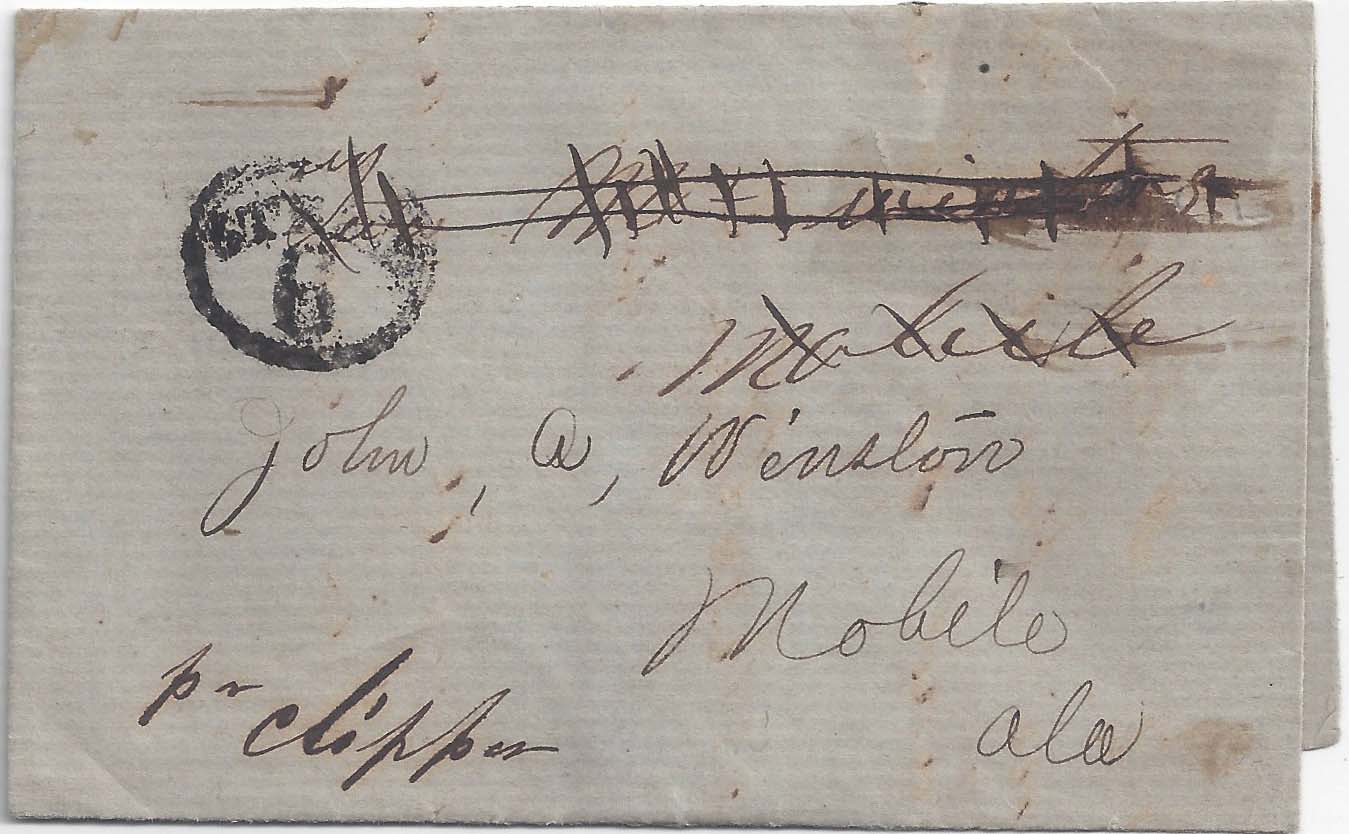 6
Mobile
John, A, Winston
Mobile
ala
pr
clipper